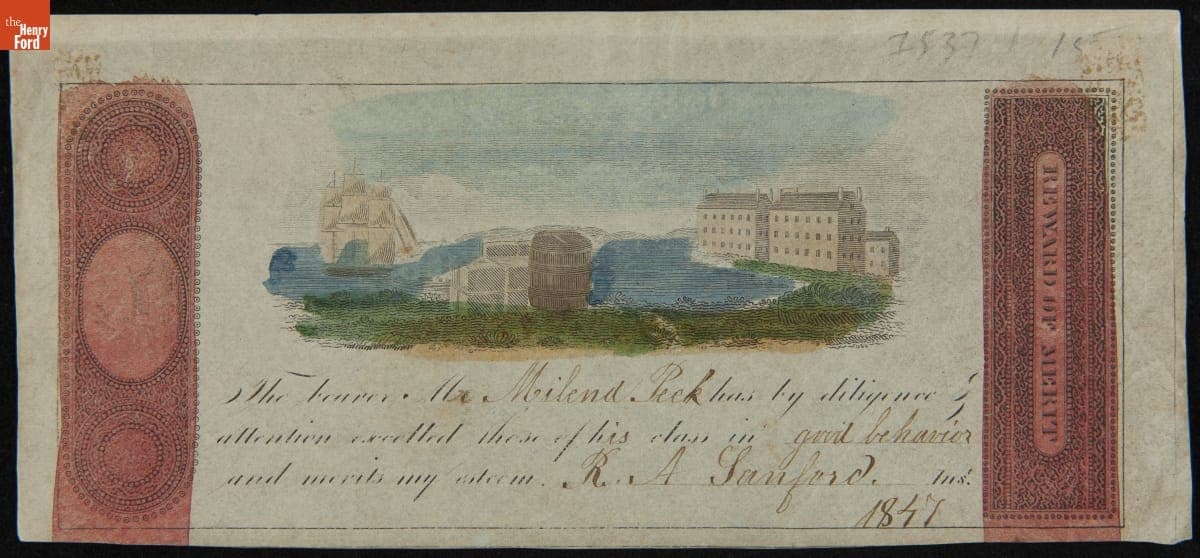 the
Henry
Ford
1837 15
REWARD OF MERIT
The bearer Mr Milend Peck has by diligence &
attention excelled those of his class in good behavior
and merits my esteem. R. A Sanford. Ins.
1847